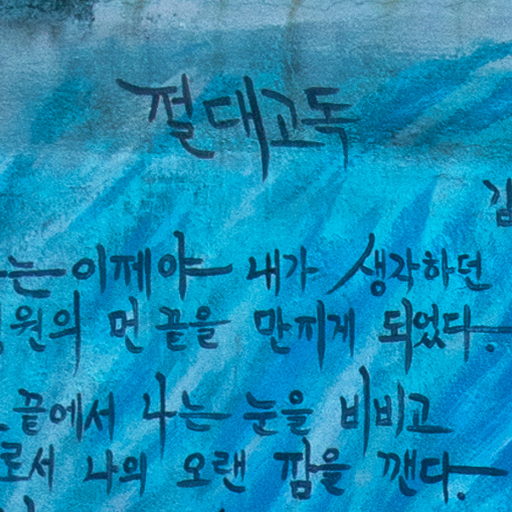 절대고독
김
나는 이제야 내가 생각하던
영원의 먼 끝을 만지게 되었다.
끝에서 나는 눈을 비비고
로서 나의 오랜 잠을 깬다.